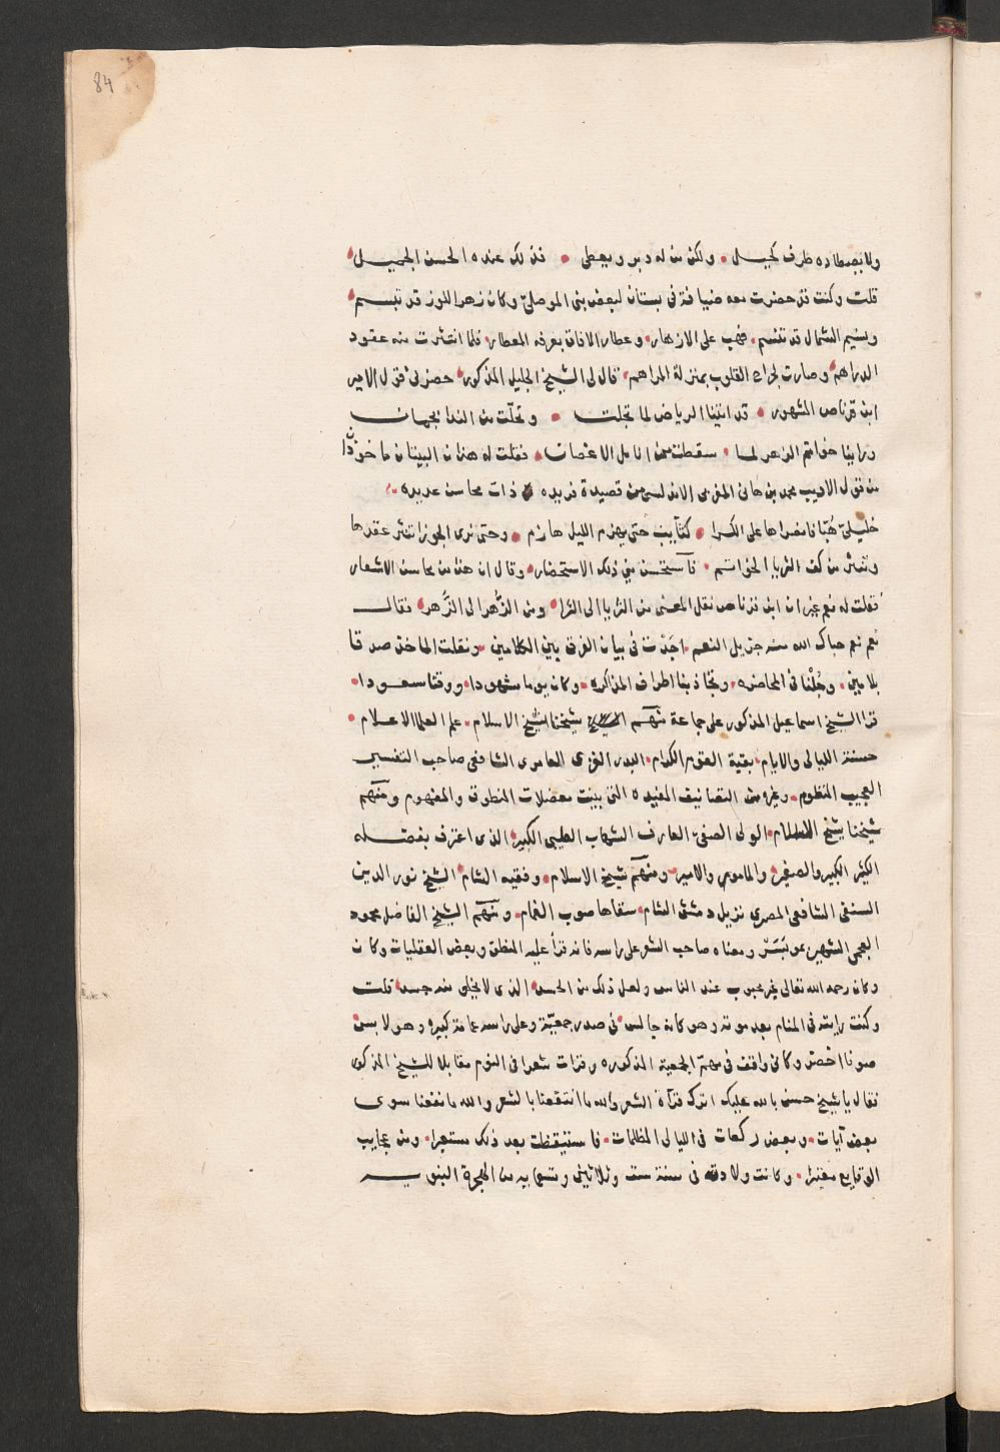 84
ولا بصطاده طرف كحيل ولكن من له دبر ويعطى فذلك عنده الحسن الجميل
قلت وكنت قد حضرت معه ضيافة فى بستان لبعض بنى الموصلى وكان زهر اللوز قد تبسم
ونسيم الشمال قد تنسم فهب على الازهار وعطر الافاق بعرفه المعطار فلما انتثرت منه عقود
الدراهم وصارت لجراح القلوب بمنزلة المراهم قال لى الشيخ الجليل المذكور حضرنى قول الامير
ابن قرناص المشهور قد اتينا الرياض لما تجلت وتحلّت من الندا بجمان
وراينا خواتم الزهر لما سقطت من انامل الاغصان فقلت له هذان البيتان ماخوذان
من قول الاديب محمد بن هانى المغربى الاندلسى من قصيدة فريده ذات محاسن عديده
خليلىّ هُبّا فانصراها على الكرا كتآيب حتى يهزم الليل هازم وحتى نرى الجوزا تنثر عقدها
وتنثر من كف الثريا الخواتم فآستحسن منى ذلك الاستحضار وقال ان هذا من محاسن الاشعار
فقلت له نعم غير ان ابن قرناص نقل المعنى من الثريا الى الثرا ومن الزُّهر الى الزَّهر فقال
نعم نعم حباك الله منه جزيل النعم اجَدْت فى بيان الفرق بين الكلامين ونقلت الماخذ صدقا
بلا مين وجُلْنا فى المحاضره وتجاذبنا اطراف المذاكره وكان يوما مشهودا ووقتا مسعودا
قرا الشيخ اسماعيل المذكور على جماعة منهم شيخنا شيخ الاسلام علم العلما الاعلام
حسنة الليالى والايام بقية القوم الكرام البدر الغزى العامرى الشافعى صاحب التفسير
العجيب المنظوم وغيره من التصانيف المفيده التى بينت معضلات المنطوق والمفهوم ومنهم
شيخنا شيخ الاسلام الولى الصفىّ العارف الشهاب الطيبى الكبير الذى اعترف بفضله
الكثير الكبير والصغير والمامور والامير ومنهم شيخ الاسلام وفقيه الشام الشيخ نور الدين
السنفى الشافعى المصرى نزيل دمشق الشام سقاها صوب الغمام ومنهم الشيخ الفاضل محمود
العجمى الشهير ومعناه صاحب الشعر على راسه فانه قرأ عليه المنطق وبعض العقليات وكان
وكان رحمه الله تعالى غير محبوب عند الناس ولعل ذلك من الحسد الذى لا يخلى منه جسد قلت
وكنت رايته فى المنام بعد موته وهو كانه جالس فى صدر جمعيّة وعلى راسه عمامة كبيره وهو لابس
صوفا اخضر وكانى واقف فى مهمّ الجمعية المذكوره وقرات شعرا فى النوم مقابلا للشيخ المذكور
فقال يا شيخ حسن بالله عليك اترك قرآة الشعر والله ما انتفعنا بالشعر والله ما نفعنا سوى
بعض آيات وبعض ركعات فى الليالى المظلمات فاستيقظت بعد ذلك مستعبرا ومن عجايب
الوقايع معتبرا وكانت ولادته فى سنة ست وثلاثين وتسعمايه من الهجرة النبويه